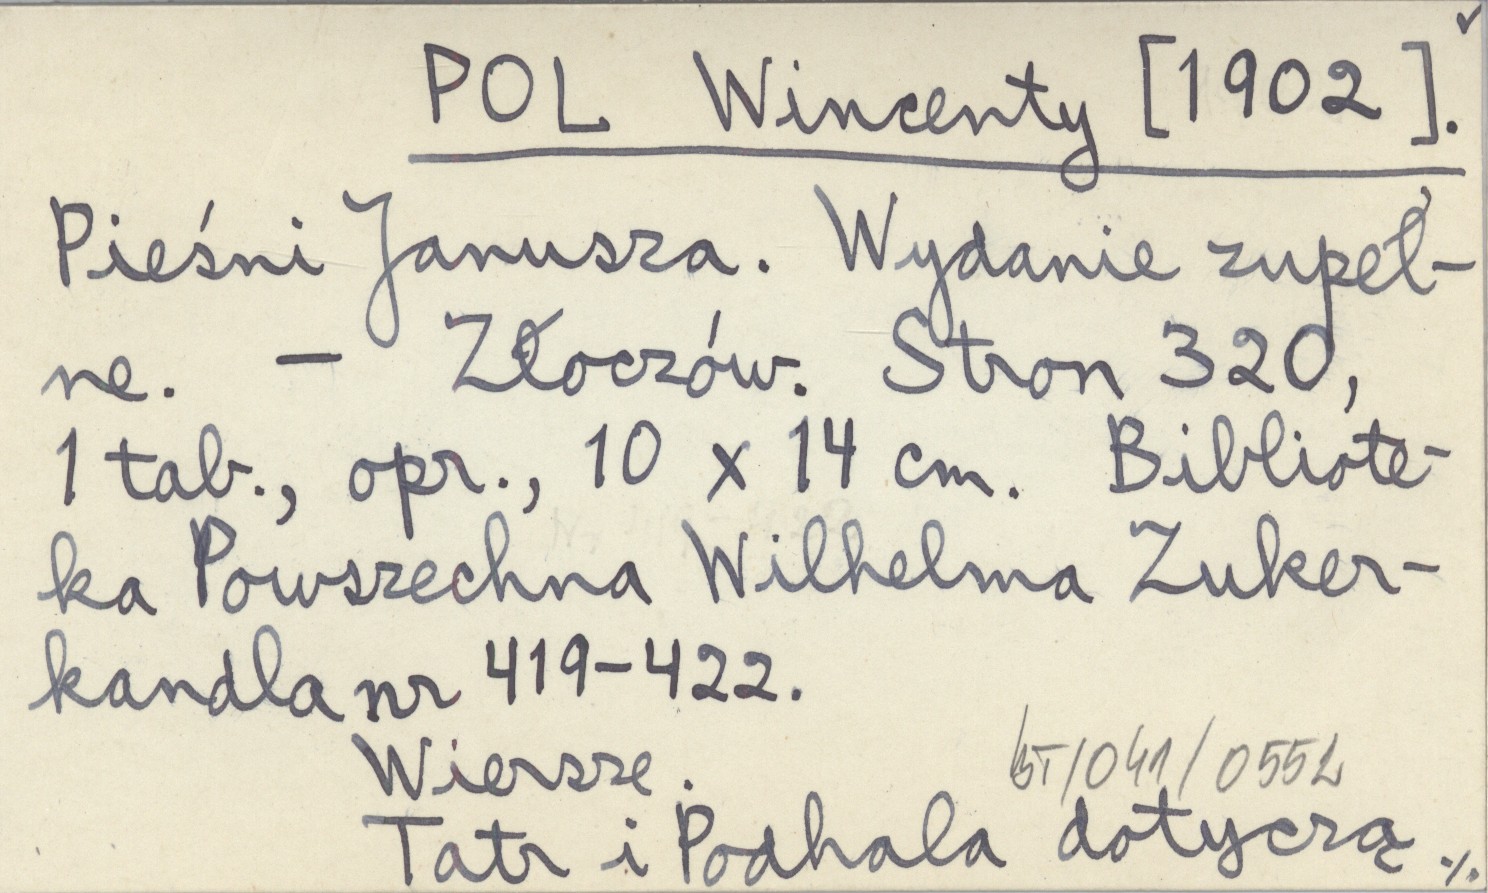 POL Wincenty [1902].
Pieśni Janusza. Wydanie zupeł-
ne. — Złoczów. Stron 320,
1 tab., opr., 10 x 14 cm. Bibliote-
ka Powszechna Wilhelma Zuker-
kandla nr 419-422.
Wiersze.
/041/0552
Tatr i Podhala dotyczą ./.